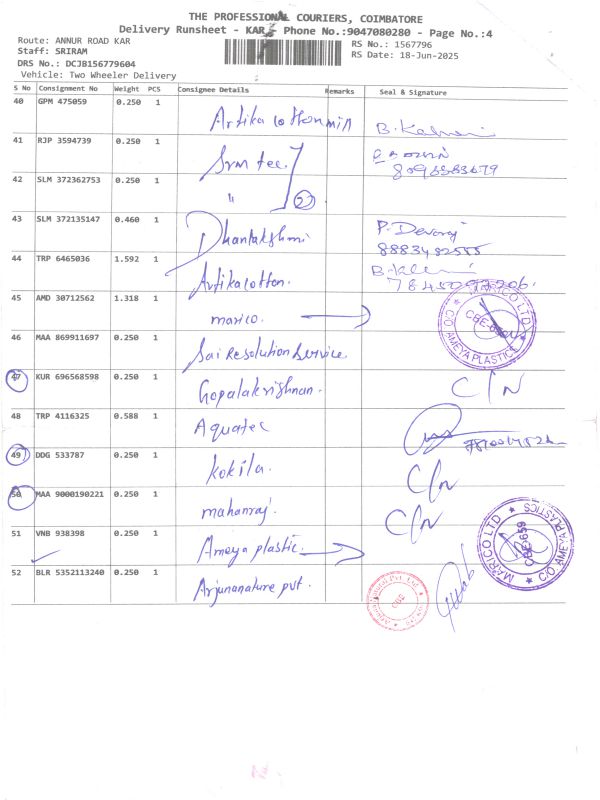 THE PROFESSIONAL COURIERS, COIMBATORE
Delivery Runsheet - KAR - Phone No.:9047080280 - Page No.:4
Route: ANNUR ROAD KAR
RS No.: 1567796
Staff: SRIRAM
RS Date: 18-Jun-2025
DRS No.: DCJB156779604
Vehicle: Two Wheeler Delivery
S No Consignment No Weight PCS Consignee Details Remarks Seal & Signature
40 GPM 475059 0.250 1 Artika cotton mill B.
41 RJP 3594739 0.250 1 Srm tec.
42 SLM 372362753 0.250 1 "
43 SLM 372135147 0.460 1 Dhanlakshmi P. Devaraj
8883482555
44 TRP 6465036 1.592 1 Artika cotton.
45 AMD 30712562 1.318 1 marico. MARICO LTD C/O AMEYA PLASTICS CBE-659
46 MAA 869911697 0.250 1 Sai Resolution Service
47 KUR 696568598 0.250 1 Gopalakrishnan. C/N
48 TRP 4116325 0.588 1 Aquatec
49 DDG 533787 0.250 1 kokila. C/N
50 MAA 9000190221 0.250 1 mahanraj. C/N
51 VNB 938398 0.250 1 Ameya plastic. MARICO LTD C/O AMEYA PLASTICS CBE-659
52 BLR 5352113240 0.250 1 Arjunanature pvt.